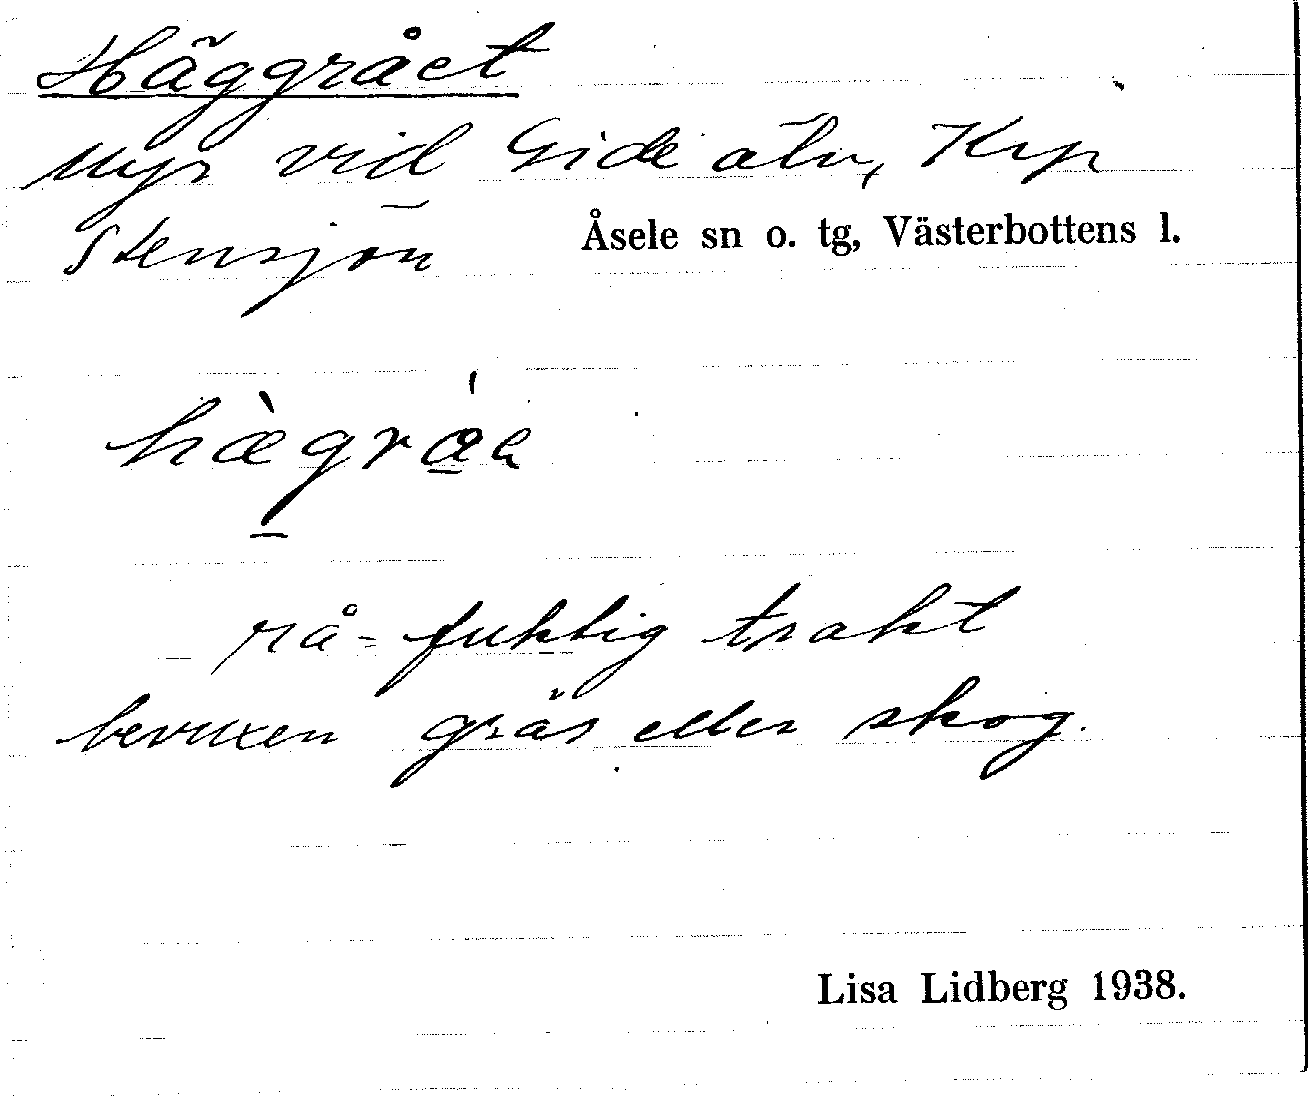 Häggrået
myr vid Gide älv, Krp
Stensjön Åsele sn o. tg, Västerbottens l.
hægråa
rå = fuktig trakt
bevuxen gräs eller skog.
Lisa Lidberg 1938.